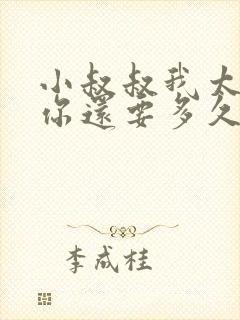 小叔叔我太
你還要多久
李成桂